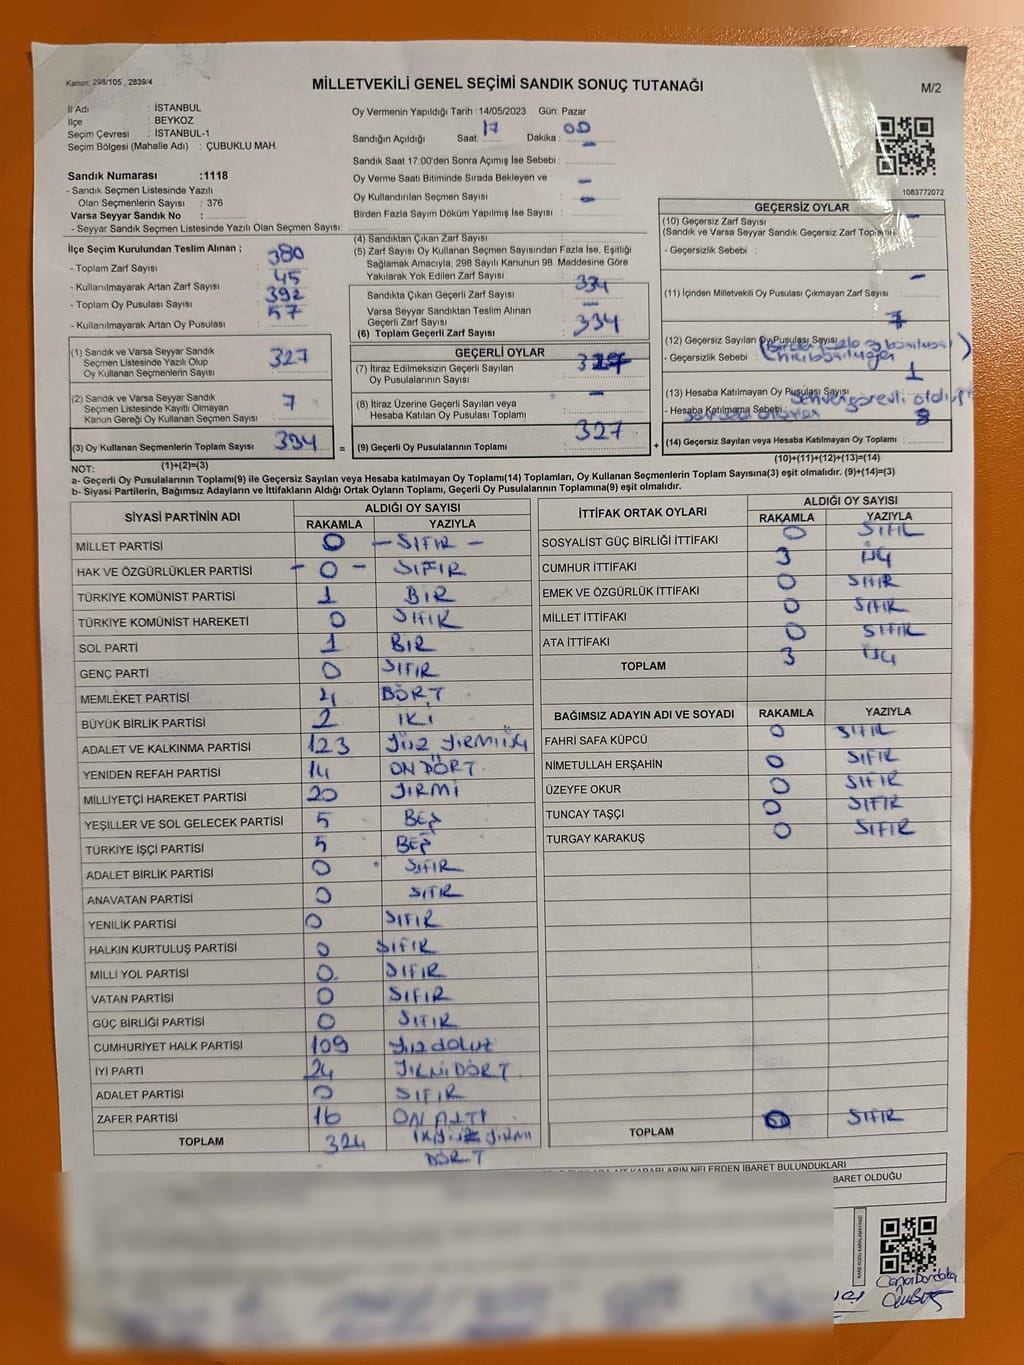 Kanun: 298/105 , 2839/4
MİLLETVEKİLİ GENEL SEÇİMİ SANDIK SONUÇ TUTANAĞI
M/2
İl Adı : İSTANBUL
İlçe : BEYKOZ
Seçim Çevresi : İSTANBUL-1
Seçim Bölgesi (Mahalle Adı) : ÇUBUKLU MAH.
Oy Vermenin Yapıldığı Tarih : 14/05/2023 Gün: Pazar
Sandığın Açıldığı Saat: 17 Dakika : 00
Sandık Saat 17:00'den Sonra Açımış İse Sebebi : –
Oy Verme Saati Bitiminde Sırada Bekleyen ve
Oy Kullandırılan Seçmen Sayısı : –
Birden Fazla Sayım Döküm Yapılmış İse Sayısı : –
1083772072
Sandık Numarası :1118
- Sandık Seçmen Listesinde Yazılı
Olan Seçmenlerin Sayısı : 376
Varsa Seyyar Sandık No :
- Seyyar Sandık Seçmen Listesinde Yazılı Olan Seçmen Sayısı:
İlçe Seçim Kurulundan Teslim Alınan ;
- Toplam Zarf Sayısı : 380
- Kullanılmayarak Artan Zarf Sayısı : 45
- Toplam Oy Pusulası Sayısı : 392
- Kullanılmayarak Artan Oy Pusulası : 57
(1) Sandık ve Varsa Seyyar Sandık
Seçmen Listesinde Yazılı Olup
Oy Kullanan Seçmenlerin Sayısı : 327
(2) Sandık ve Varsa Seyyar Sandık
Seçmen Listesinde Kayıtlı Olmayan
Kanun Gereği Oy Kullanan Seçmen Sayısı : 7
(3) Oy Kullanan Seçmenlerin Toplam Sayısı : 334
(1)+(2)=(3)
(4) Sandıktan Çıkan Zarf Sayısı :
(5) Zarf Sayısı Oy Kullanan Seçmen Sayısından Fazla İse, Eşitliği
Sağlamak Amacıyla, 298 Sayılı Kanunun 98. Maddesine Göre
Yakılarak Yok Edilen Zarf Sayısı :
Sandıkta Çıkan Geçerli Zarf Sayısı : 334
Varsa Seyyar Sandıktan Teslim Alınan
Geçerli Zarf Sayısı : –
(6) Toplam Geçerli Zarf Sayısı : 334
GEÇERLİ OYLAR
(7) İtiraz Edilmeksizin Geçerli Sayılan
Oy Pusulalarının Sayısı : 327
(8) İtiraz Üzerine Geçerli Sayılan veya
Hesaba Katılan Oy Pusulası Toplamı : –
= (9) Geçerli Oy Pusulalarının Toplamı : 327 +
GEÇERSİZ OYLAR
(10) Geçersiz Zarf Sayısı
(Sandık ve Varsa Seyyar Sandık Geçersiz Zarf Toplamı) : –
- Geçersizlik Sebebi :
(11) İçinden Milletvekili Oy Pusulası Çıkmayan Zarf Sayısı : –
(12) Geçersiz Sayılan Oy Pusulası Sayısı : 7
- Geçersizlik Sebebi :
(13) Hesaba Katılmayan Oy Pusulası Sayısı : 1
- Hesaba Katılmama Sebebi :
(14) Geçersiz Sayılan veya Hesaba Katılmayan Oy Toplamı : 8
(10)+(11)+(12)+(13)=(14)
NOT:
a- Geçerli Oy Pusulalarının Toplamı(9) ile Geçersiz Sayılan veya Hesaba katılmayan Oy Toplamı(14) Toplamları, Oy Kullanan Seçmenlerin Toplam Sayısına(3) eşit olmalıdır. (9)+(14)=(3)
b- Siyasi Partilerin, Bağımsız Adayların ve İttifakların Aldığı Ortak Oyların Toplamı, Geçerli Oy Pusulalarının Toplamına(9) eşit olmalıdır.
SİYASİ PARTİNİN ADI ALDIĞI OY SAYISI
RAKAMLA YAZIYLA
MİLLET PARTİSİ 0 – SIFIR –
HAK VE ÖZGÜRLÜKLER PARTİSİ – 0 – SIFIR
TÜRKİYE KOMÜNİST PARTİSİ 1 BIR
TÜRKİYE KOMÜNİST HAREKETİ 0 SIFIR
SOL PARTİ 1 BIR
GENÇ PARTİ 0 SIFIR
MEMLEKET PARTİSİ 4 DÖRT
BÜYÜK BİRLİK PARTİSİ 2 IKI
ADALET VE KALKINMA PARTİSİ 123 YÜZ YIRMIÜÇ
YENİDEN REFAH PARTİSİ 14 ON DÖRT
MİLLİYETÇİ HAREKET PARTİSİ 20 YIRMI
YEŞİLLER VE SOL GELECEK PARTİSİ 5 BEŞ
TÜRKİYE İŞÇİ PARTİSİ 5 BEŞ
ADALET BİRLİK PARTİSİ 0 SIFIR
ANAVATAN PARTİSİ 0 SIFIR
YENİLİK PARTİSİ 0 SIFIR
HALKIN KURTULUŞ PARTİSİ 0 SIFIR
MİLLİ YOL PARTİSİ 0 SIFIR
VATAN PARTİSİ 0 SIFIR
GÜÇ BİRLİĞİ PARTİSİ 0 SIFIR
CUMHURİYET HALK PARTİSİ 109 Yüzdokuz
İYİ PARTİ 24 YIRMIDÖRT
ADALET PARTİSİ 0 SIFIR
ZAFER PARTİSİ 16 ON ALTI
TOPLAM 324 YIRMI
DÖRT
İTTİFAK ORTAK OYLARI ALDIĞI OY SAYISI
RAKAMLA YAZIYLA
SOSYALİST GÜÇ BİRLİĞİ İTTİFAKI 0 SIFIR
CUMHUR İTTİFAKI 3 ÜÇ
EMEK VE ÖZGÜRLÜK İTTİFAKI 0 SIFIR
MİLLET İTTİFAKI 0 SIFIR
ATA İTTİFAKI 0 SIFIR
TOPLAM 3 ÜÇ
BAĞIMSIZ ADAYIN ADI VE SOYADI RAKAMLA YAZIYLA
FAHRİ SAFA KÜPCÜ 0 SIFIR
NİMETULLAH ERŞAHİN 0 SIFIR
ÜZEYFE OKUR 0 SIFIR
TUNCAY TAŞÇI 0 SIFIR
TURGAY KARAKUŞ 0 SIFIR
TOPLAM 0 SIFIR
NELERDEN İBARET BULUNDUKLARI
BARET OLDUĞU